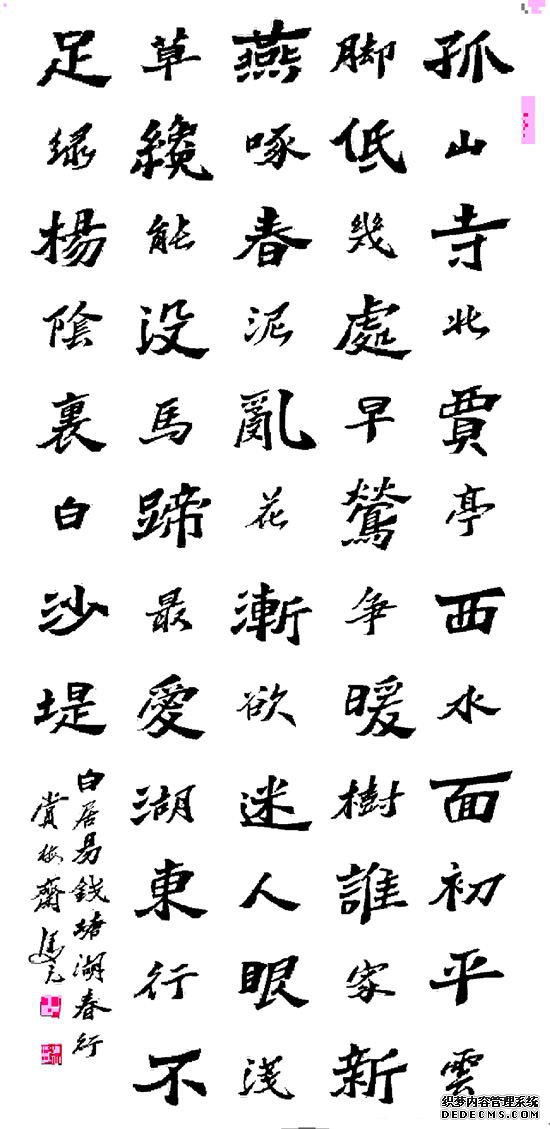 孤山寺北賈亭西水面初平雲
脚低幾處早鶯争暖樹誰家新
燕啄春泥亂花漸欲迷人眼淺
草纔能没馬蹄最愛湖東行不
足緑楊陰裏白沙堤
白居易錢塘湖春行
賞梅齋
织梦内容管理系统
DEDECMS.COM